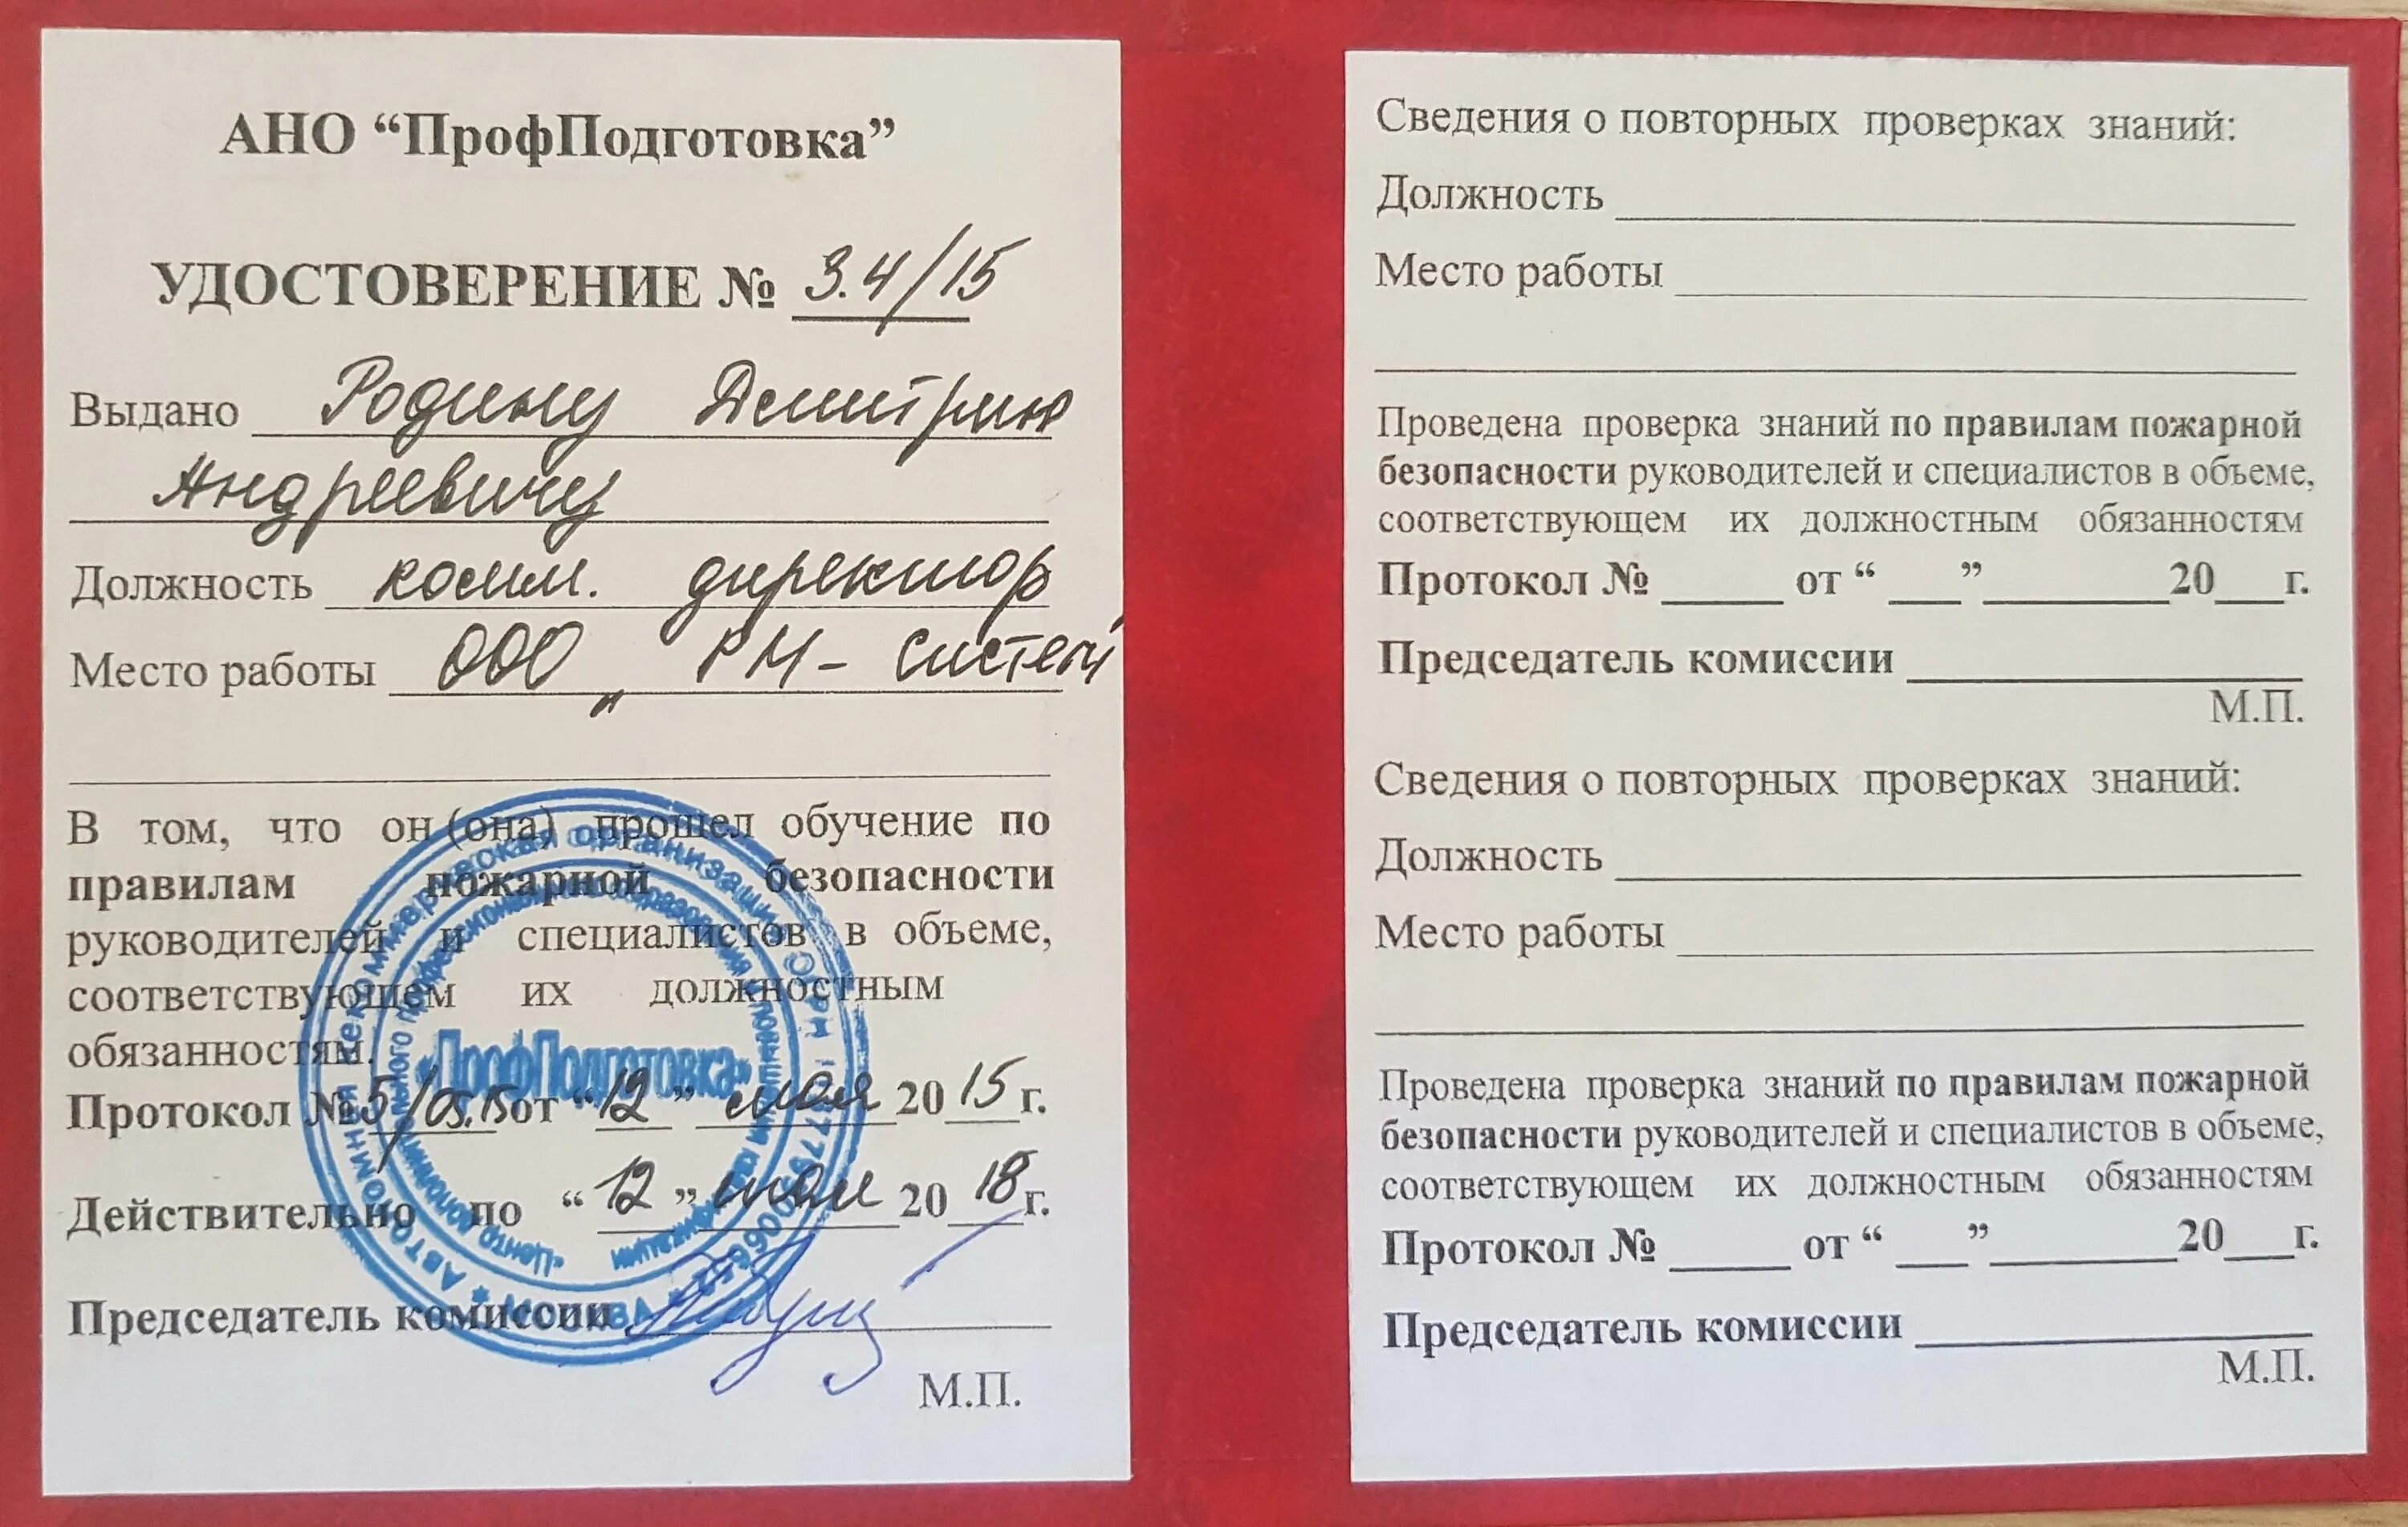 АНО “ПрофПодготовка”
УДОСТОВЕРЕНИЕ № 3.4/15
Выдано Родину Дмитрию
Андреевичу
Должность комм. директор
Место работы ООО „ РМ- Систем
В том, что он (она) прошел обучение по
правилам пожарной безопасности
руководителей и специалистов в объеме,
соответствующем их должностным
обязанностям.
Протокол № 5/05.15 от “12” мая 2015г.
Действительно по “12” мая 2018г.
Председатель комиссии
М.П.
Автономная некоммерческая организация
«Центр дополнительного профессионального образования
«ПрофПодготовка»
МОСКВА
Сведения о повторных проверках знаний:
Должность
Место работы
Проведена проверка знаний по правилам пожарной
безопасности руководителей и специалистов в объеме,
соответствующем их должностным обязанностям
Протокол № от “ ” 20 г.
Председатель комиссии
М.П.
Сведения о повторных проверках знаний:
Должность
Место работы
Проведена проверка знаний по правилам пожарной
безопасности руководителей и специалистов в объеме,
соответствующем их должностным обязанностям
Протокол № от “ ” 20 г.
Председатель комиссии
М.П.